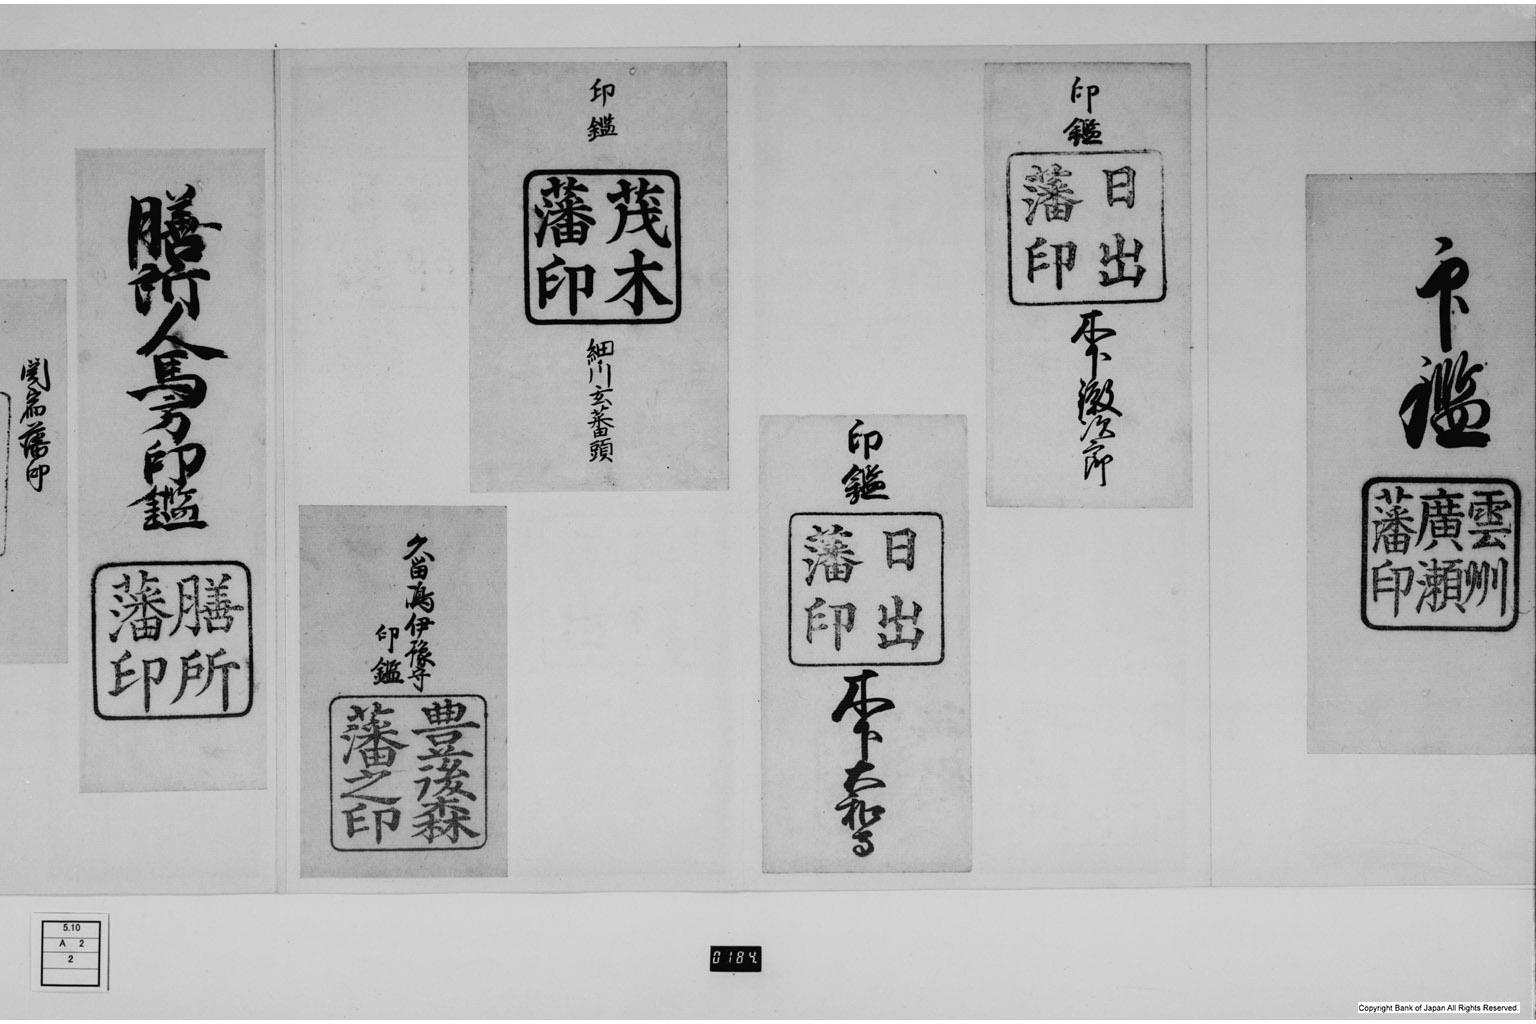 印鑑
雲州
廣瀬
藩印
印鑑
日出
藩印
木下徽次郎
印鑑
日出
藩印
木下大和守
印鑑
茂木
藩印
細川玄蕃頭
久留嶋伊豫守
印鑑
豊後森
藩之印
膳所人馬方印鑑
膳所
藩印
関宿藩印
5.10
A 2
2
0184
Copyright Bank of Japan All Rights Reserved.